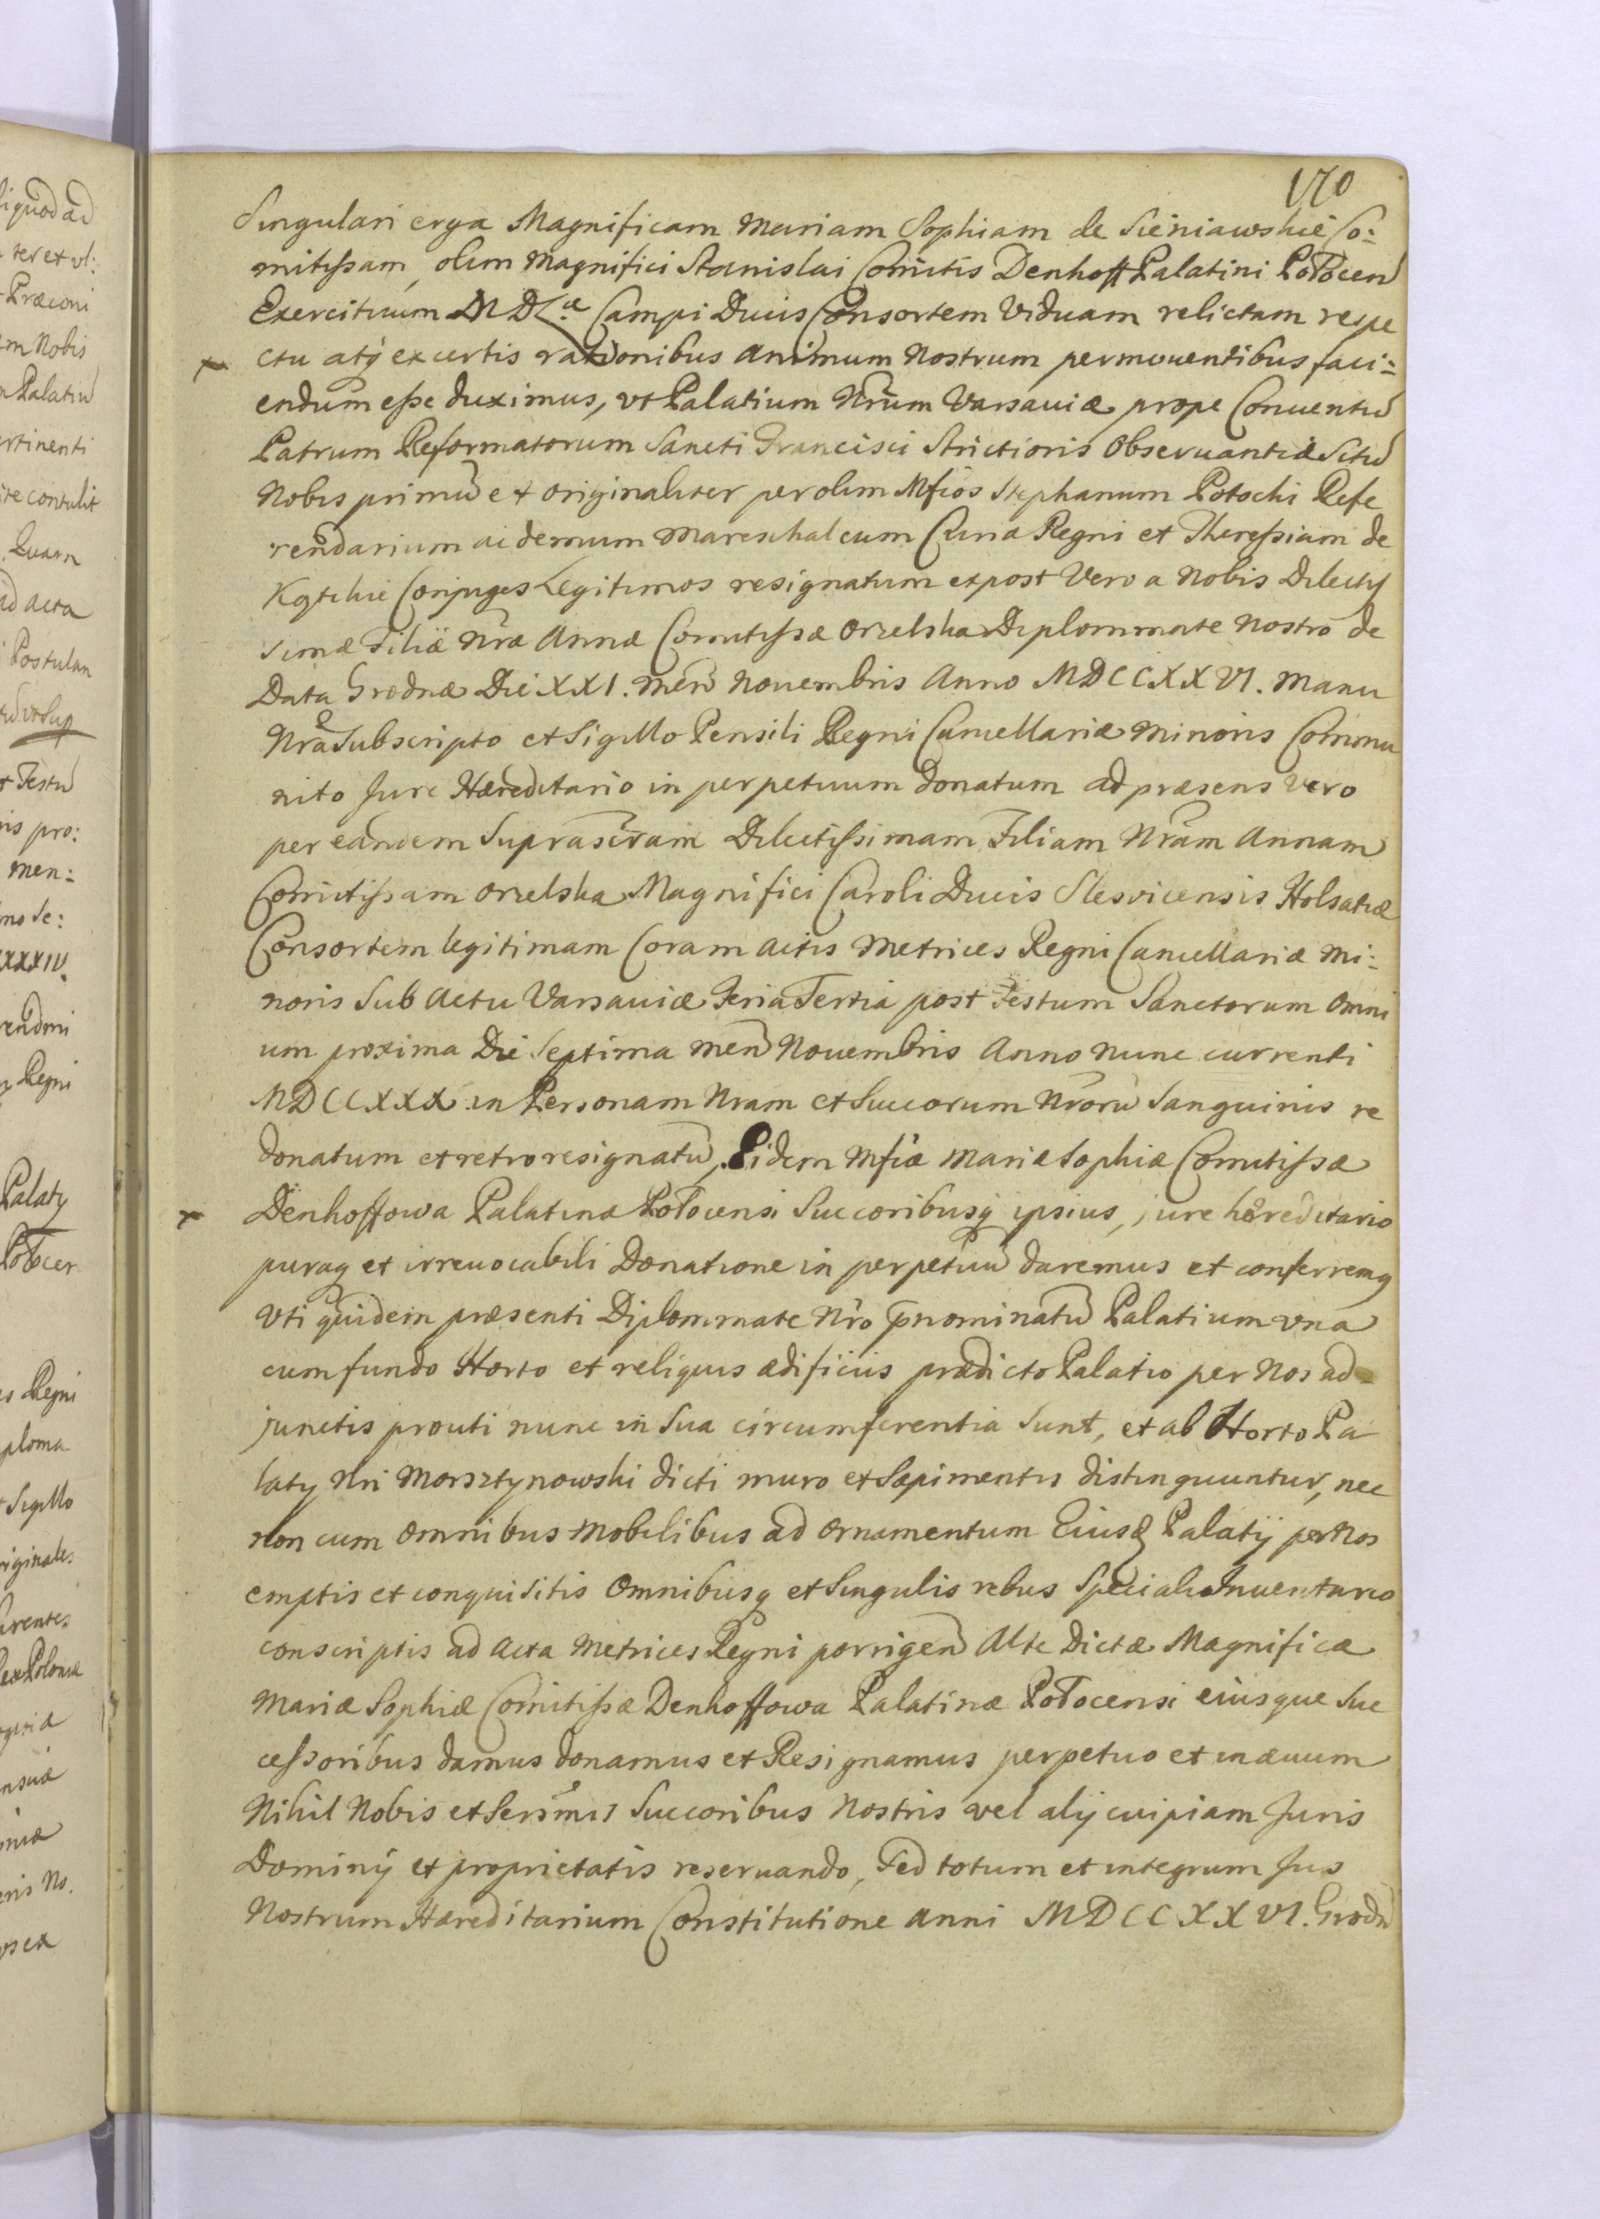 170
Singulari erga Magnificam Mariam Sophiam de Sieniawskie Co:
mitissam, olim Magnifici Stanislai Comitis Denhoff Palatini Polocen
Exercituum M D L.æ Campi Ducis Consortem Viduam relictam respe
ctu atq ex certis rationibus animum Nostrum permouentibus faci:
endum esse duximus, vt Palatium Nrum Varsauiæ prope Conuentu
Patrum Reformatorum Sancti Francisci Strictioris Obseruantiæ Situ
Nobis primu et originaliter per olim Mfios Stephanum Potocki Refe
rendarium ac demum Mareschalcum Curiæ Regni et Theressiam de
Kątskie Conjuges Legitimos resignatum expost Vero a Nobis Dilectis
simæ Filiæ Nræ Annæ Comitissæ Orzelska Diplommate Nostro de
Data Grodnæ Die XXI. Men Nouembris Anno MDCCXXVI. Manu
Nra Subscripto et Sigillo Pensili Regni Cancellariæ Minoris Commu
nito Jure Hæreditario in perpetuum donatum ad præsens vero
per eandem Suprascram Dilectissimam Filiam Nram Annam
Comitissam Orzelska Magnifici Caroli Ducis Slesvicensis Holsatiæ
Consortem legitimam Coram actis Metrices Regni Cancellariæ Mi:
noris Sub Actu Varsauiæ Feria Tertia post Festum Sanctorum Omni
um proxima Die Septima Men Nouembris Anno nunc currenti
MDCCXXX in Personam Nram et Succorum Nroru Sanguinis re
donatum et retroresignatu, Eidem Mfiæ Mariæ Sophiæ Comitissæ
Denhoffowa Palatinæ Polocensi Succoribusq ipsius, jure hæreditario
puraq et irreuocabili Donatione in perpetuu daremus et conferremq
vti quidem præsenti Diplommate Nro pnominatu Palatium vna
cum fundo Horto et reliquis ædificiis prædicto Palatio per Nos ad
junctis prouti nunc in Sua circumferentia Sunt, et ab Horto Pa
latij Nri Morsztynowski dicti muro et Sæpimentis distinguuntur, nec
non cum omnibus Mobilibus ad ornamentum Eiusd Palatij per Nos
emptis et conquisitis Omnibusq et Singulis rebus Speciali Inuentario
conscriptis ad Acta Metrices Regni porrigen Alte Dictæ Magnificæ
Mariæ Sophiæ Comitissæ Denhoffowa Palatinæ Polocensi eiusque Suc
cessoribus damus donamus et Resignamus perpetuo et in æuum
Nihil Nobis et Sersmis Succoribus Nostris vel alij cuipiam Juris
Dominij et proprietatis reseruando, Sed totum et integrum Jus
Nostrum Hæreditarium Constitutione Anni MDCCXXVI. Grodn